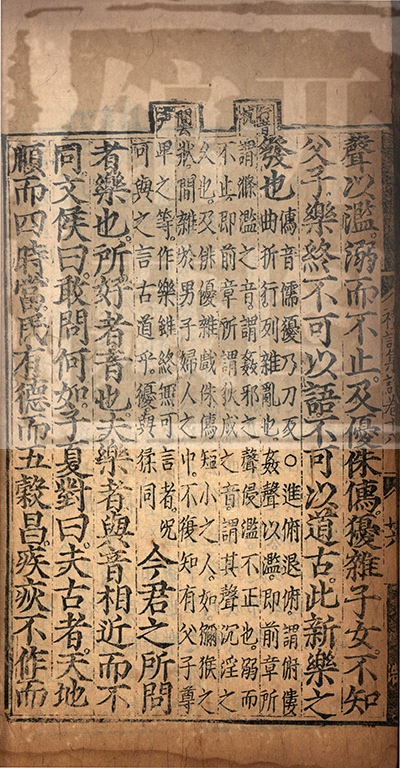 聲以濫溺而不止及優侏儒獶雜子女不知
父子樂終不可以語不可以道古此新樂之
發也
音儒獶乃刀反○進俯退俯謂俯僂
曲折行列雜亂也姦聲以濫即前章所
謂滌濫之音謂姦邪之聲侵濫不正也溺而
不止即前章所謂狄成之音謂其聲沉淫之
久也及俳優雜戲侏儒短小之人如獼猴之
狀間雜於男子婦人之中不復知有父子尊
卑之等作樂雖終無可言者况
可與之言古道乎獶與猱同
今君之所問
者樂也所好者音也夫樂者與音相近而不
同文侯曰敢問何如子夏對曰夫古者天地
順而四時當民有德而五穀昌疾疢不作而